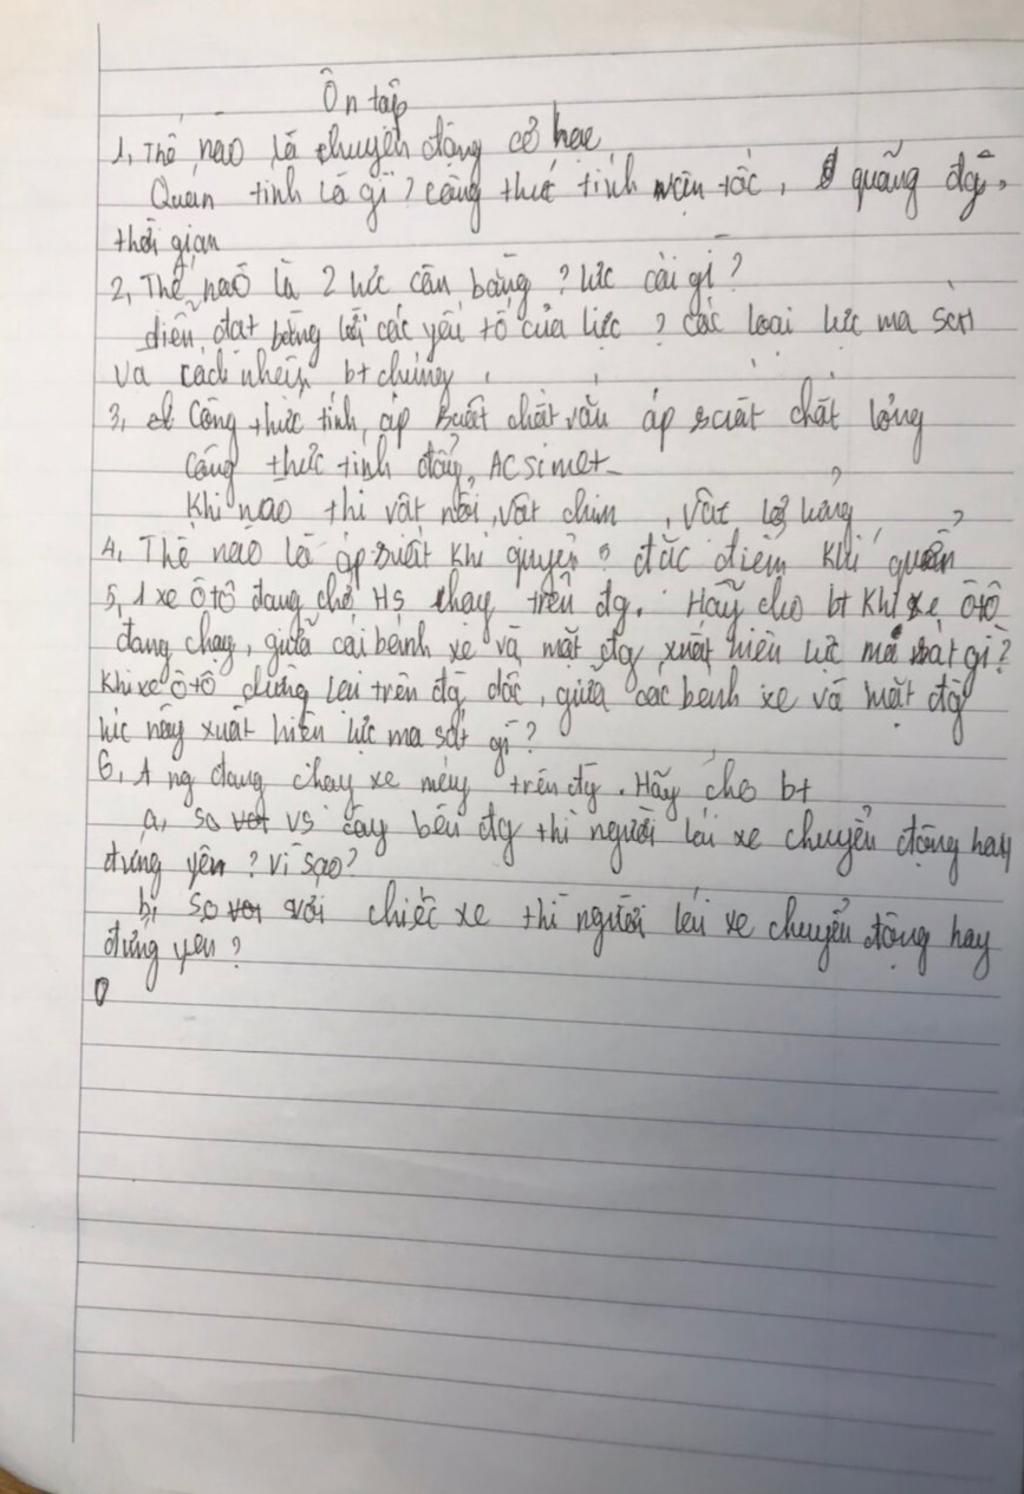 Ôn tập
1, Thế nào là chuyển động cơ học
Quán tính là gì? công thức tính vận tốc, quãng đg,
thời gian
2, Thế nào là 2 lực cân bằng? lực cài gì?
diễn đạt bằng lời các yếu tố của lực? các loại lực ma sát
và cách nhận bt chúng
3, Công thức tính áp suất chất rắn áp suất chất lỏng
Công thức tính đẩy, ACSimet
Khi nào thì vật nổi, vật chìm, vật lơ lửng?
4, Thế nào là áp suất khí quyển? đặc điểm khí quển?
5, 1 xe ôtô đang chở HS chạy trên đg. Hãy cho bt Khi xe ôtô
đang chạy, giữa cái bánh xe và mặt đg xuất hiện lực ma sát gì?
Khi xe ôtô dừng lại trên đg dốc, giữa các bánh xe và mặt đg
lúc này xuất hiện lực ma sát gì?
6, 1 ng đang chạy xe máy trên đg. Hãy cho bt
a, so vs cây bên đg thì người lái xe chuyển động hay
đứng yên? Vì sao?
b, so với chiếc xe thì người lái xe chuyển động hay
đứng yên?